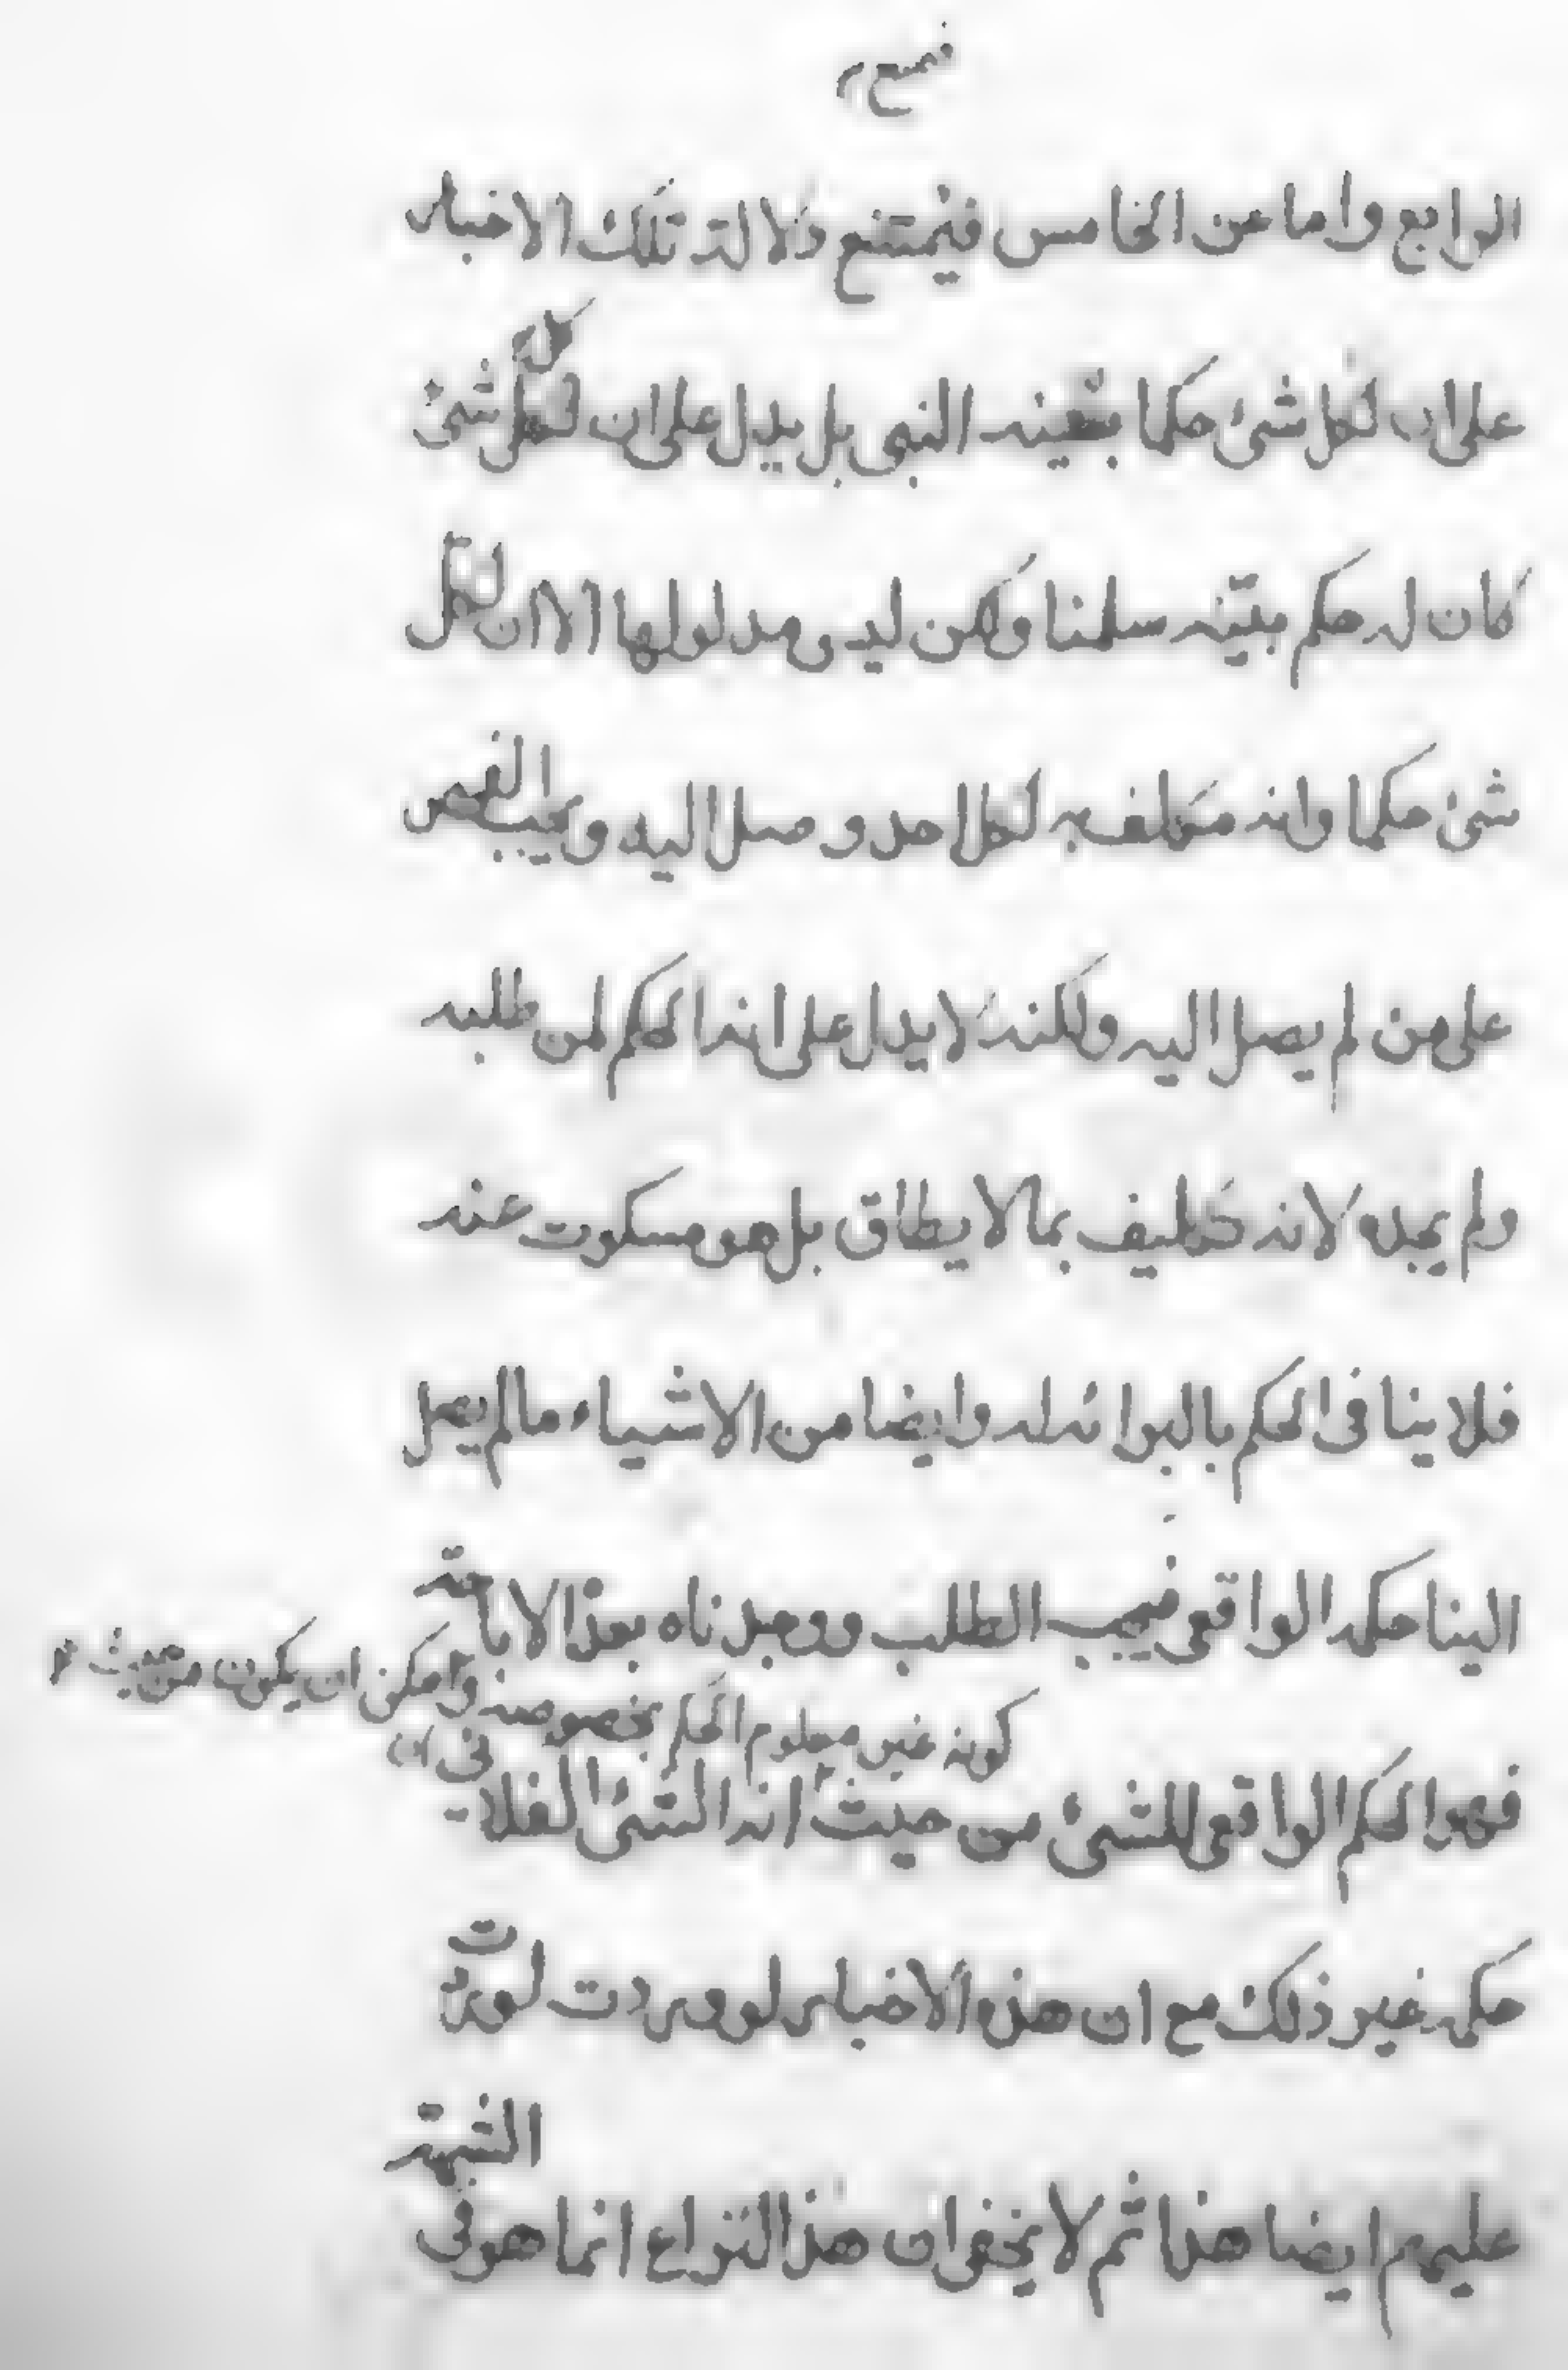 فيمنع
الرابع واما عن الخامس فيمتنع دلالة تلك الاخبار
على ان لكل شئ حكما بينه النبى بل يدل على ان كل شئ
كان له حكم بيّنه سلمنا ولكن ليس مدلولها الا ان لكل
شئ حكما وانه مكلف به لكل احد وصل اليه ويجب الفحص
على من لم يصل اليه ولكنه لا يدل على انه الحكم لمن طلبه
ولم يجده لانه تكليف بما لا يطاق بل هو مسكوت عنه
فلا ينافى الحكم بالبرائة له وايضا من الاشياء ما لم يصل
الينا حكمه الواقعى فيجب الطلب ووجدناه بعد الاباحة
وامكن ان يكون من حيث
كونه غير معلوم الحكم بخصوصه
فهو الحكم الواقعى للشئ من حيث انه الشئ الفلانى
حكمه غير ذلك مع ان هذه الاخبار لو وردت لوردت
عليهم ايضا هذا ثم لا يخفى ان هذا النزاع انما هو فى الشبهة